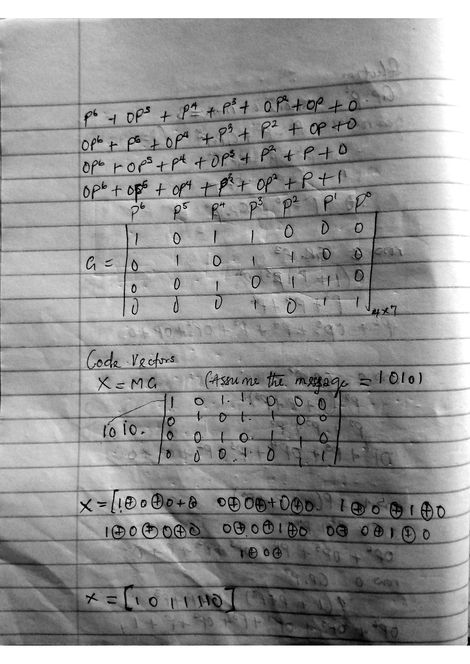 P⁶ + 0P⁵ + P⁴ + P³ + 0P² + 0P + 0
0P⁶ + P⁵ + 0P⁴ + P³ + P² + 0P + 0
0P⁶ + 0P⁵ + P⁴ + 0P³ + P² + P + 0
0P⁶ + 0P⁵ + 0P⁴ + P³ + 0P² + P + 1
P⁶ P⁵ P⁴ P³ P² P¹ P⁰
1 0 1 1 0 0 0
G = 0 1 0 1 1 0 0
0 0 1 0 1 1 0
0 0 0 1 0 1 1 4×7
Code Vectors
X = MG (Assume the message = 1010)
1 0 1 1 0 0 0
1010. 0 1 0 1 1 0 0
0 0 1 0 1 1 0
0 0 0 1 0 1 1
X = [1⊕0⊕0+0 0⊕0⊕+0⊕0. 1⊕0⊕1⊕0
1⊕0⊕0⊕0 0⊕0⊕1⊕0 0⊕0⊕1⊕0
1⊕0⊕
X = [1 0 1 1 1 1 0]